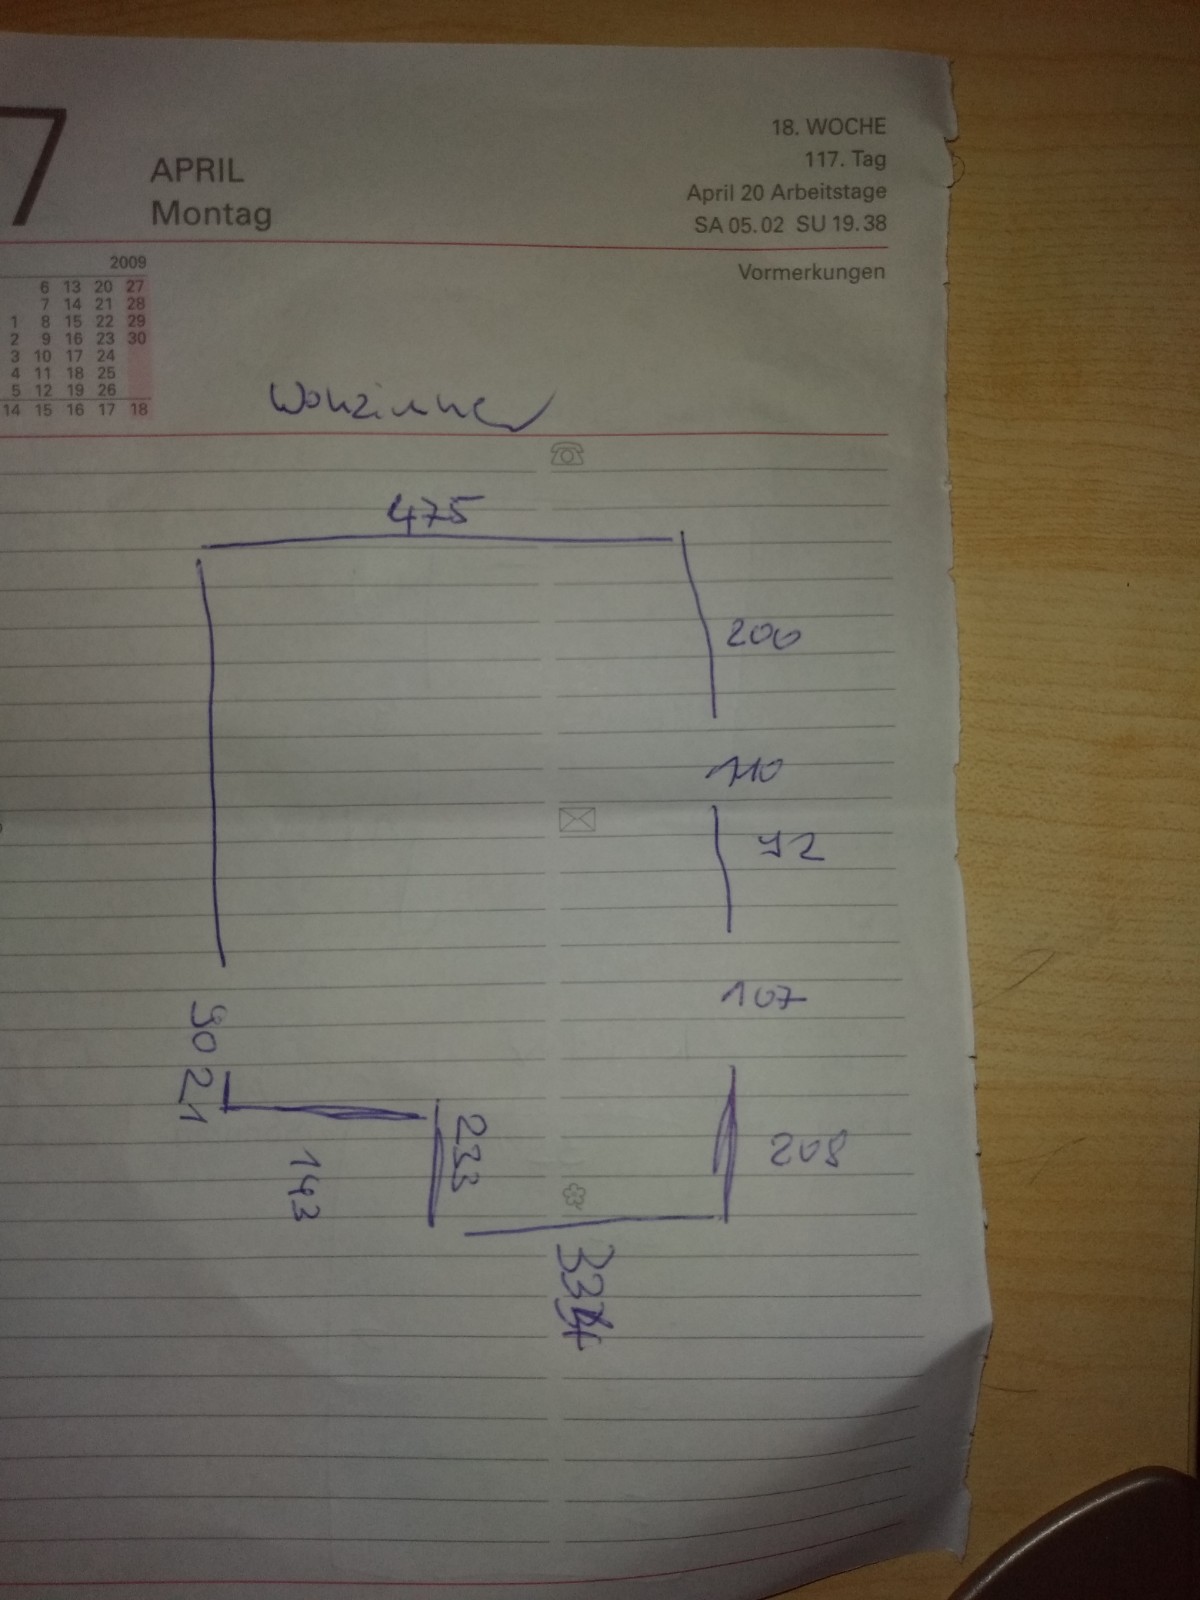 7
APRIL
Montag
18. WOCHE
117. Tag
April 20 Arbeitstage
SA 05.02 SU 19.38
Vormerkungen
2009
6 13 20 27
7 14 21 28
1 8 15 22 29
2 9 16 23 30
3 10 17 24
4 11 18 25
5 12 19 26
14 15 16 17 18
475
200
110
92
107
90
21
233
143
208